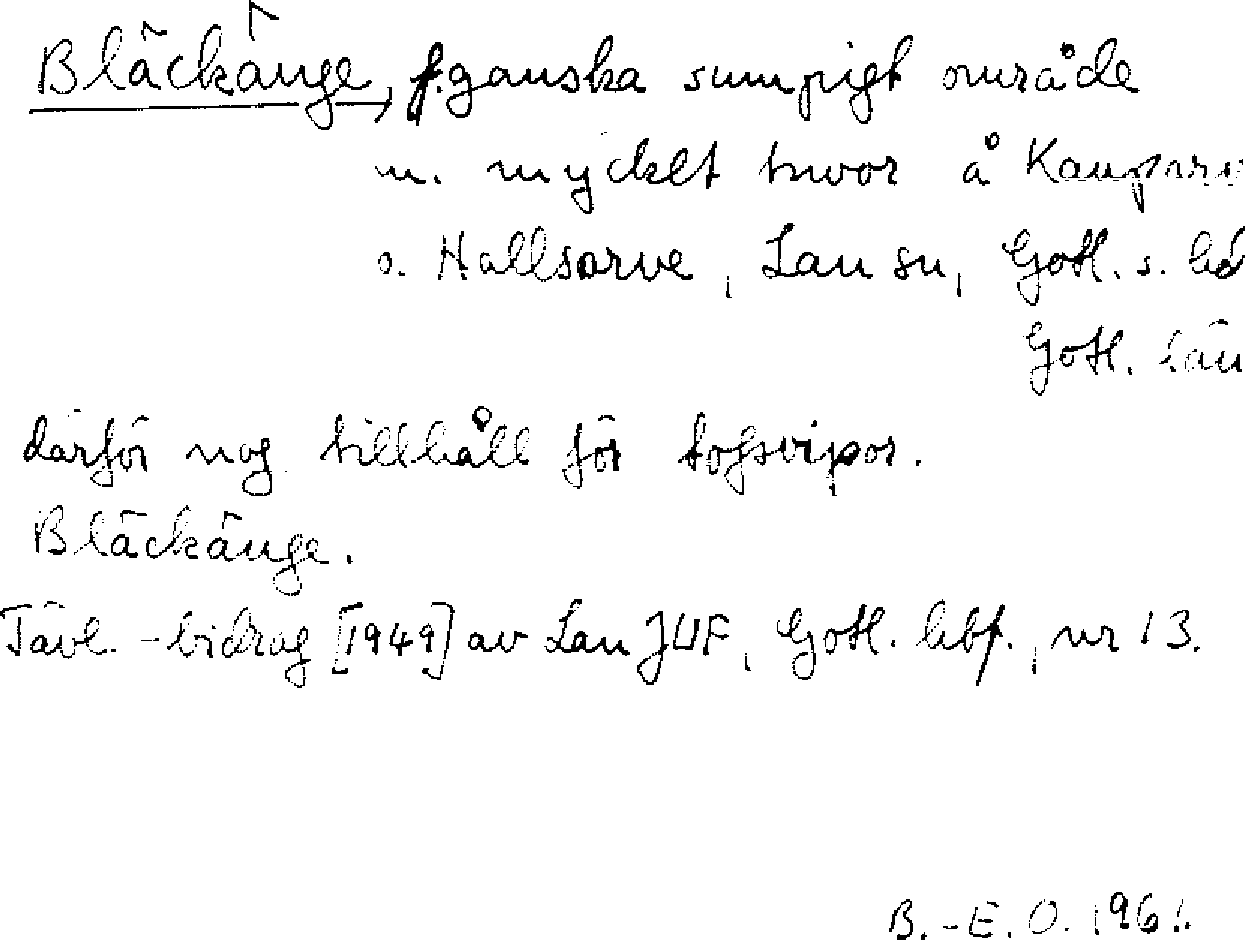 Bläckänge, f. ganska sumpigt område
m. mycket tuvor å
o. Hallsarve, Lau sn, Gotl. s. hd
Gotl. län
därför nog tillhåll för tofsvipor.
Bläckänge.
Tävl.-bidrag [1949] av Lau JUF, Gotl. hbf., nr 13.
B.-E. O. 1961.